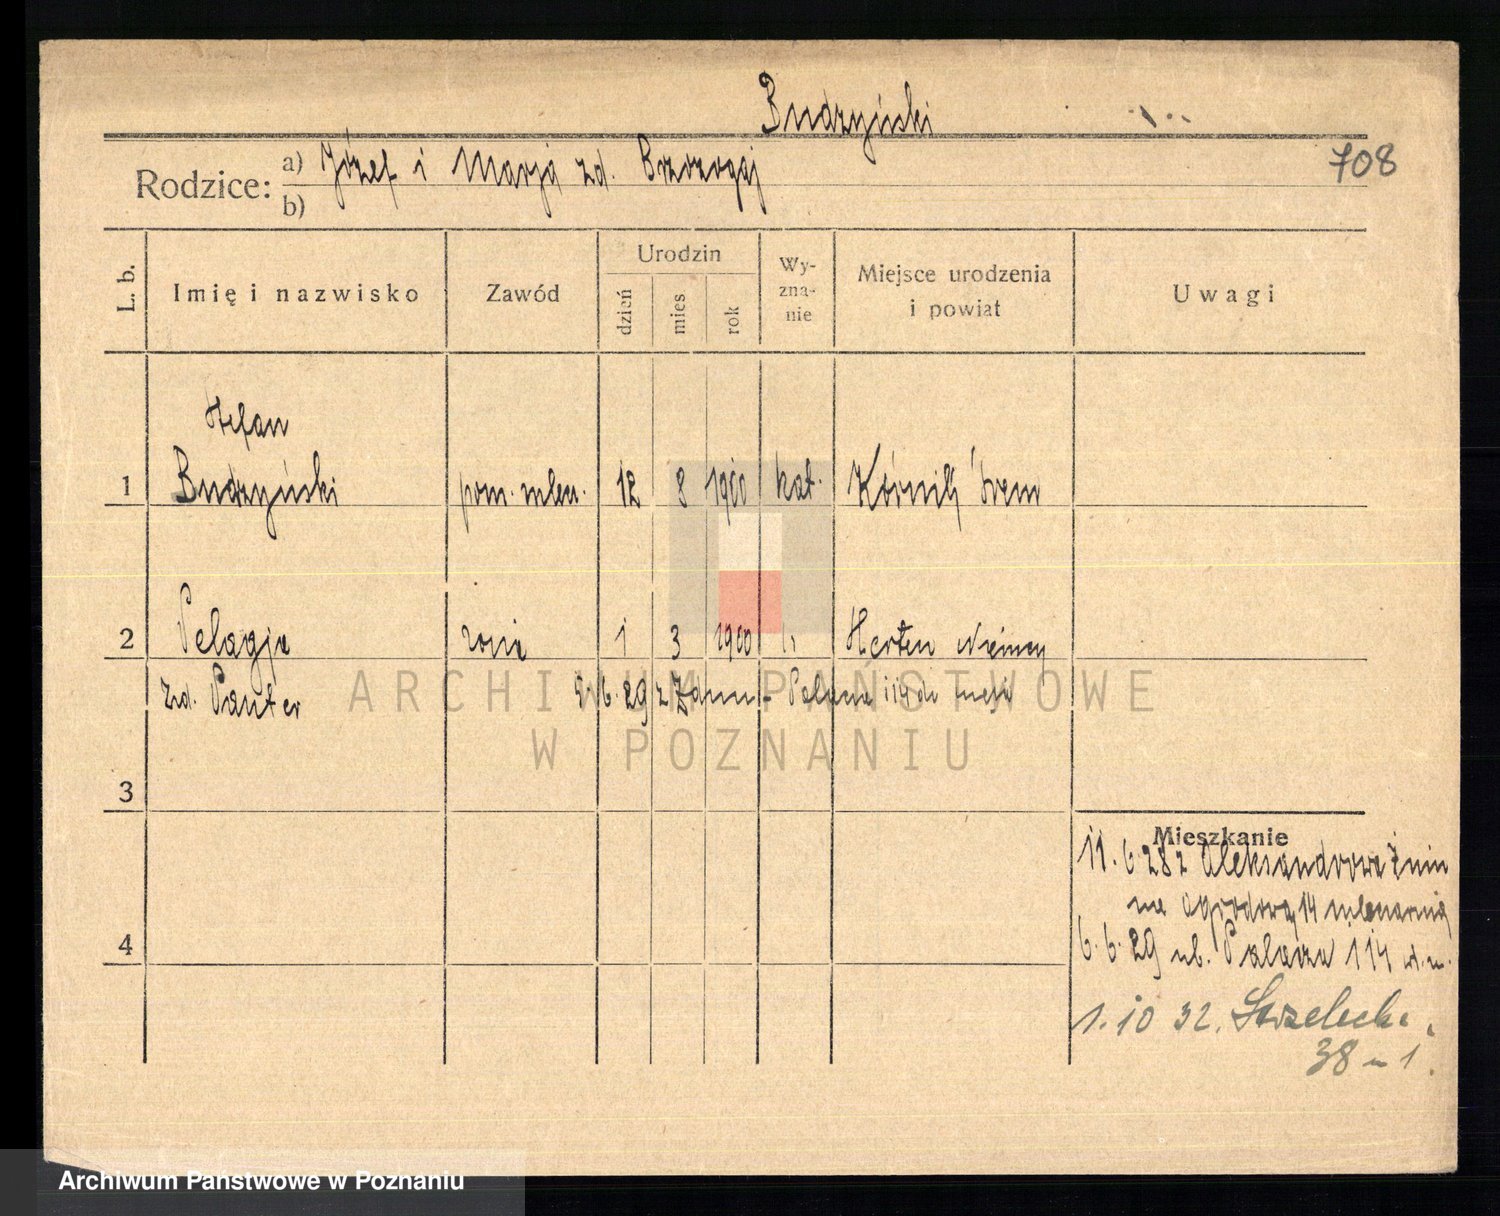 Budzyński
708
Rodzice: a) Józef i Marja zd. Brzozogaj
b)
L. b. Imię i nazwisko Zawód Urodzin dzień mies rok Wy-zna-nie Miejsce urodzenia i powiat Uwagi
Stefan
1 Budzyński pom. mlecz. 12 8 1900 kat. Kórnik Śrem
2 Pelagja żona 1 3 1900 " Herten Niemcy
zd. Panter 6. 29 z Żanu 114 do
ARCHIWUM PAŃSTWOWE
W POZNANIU
3
Mieszkanie
11. 6 28 z Aleksandrowa Żnin
na Ogrodową 14 mleczarnia
4
6. 6. 29 ul. Palacza 114
1. 10 32. Strzelecka
38 m 1.
Archiwum Państwowe w Poznaniu